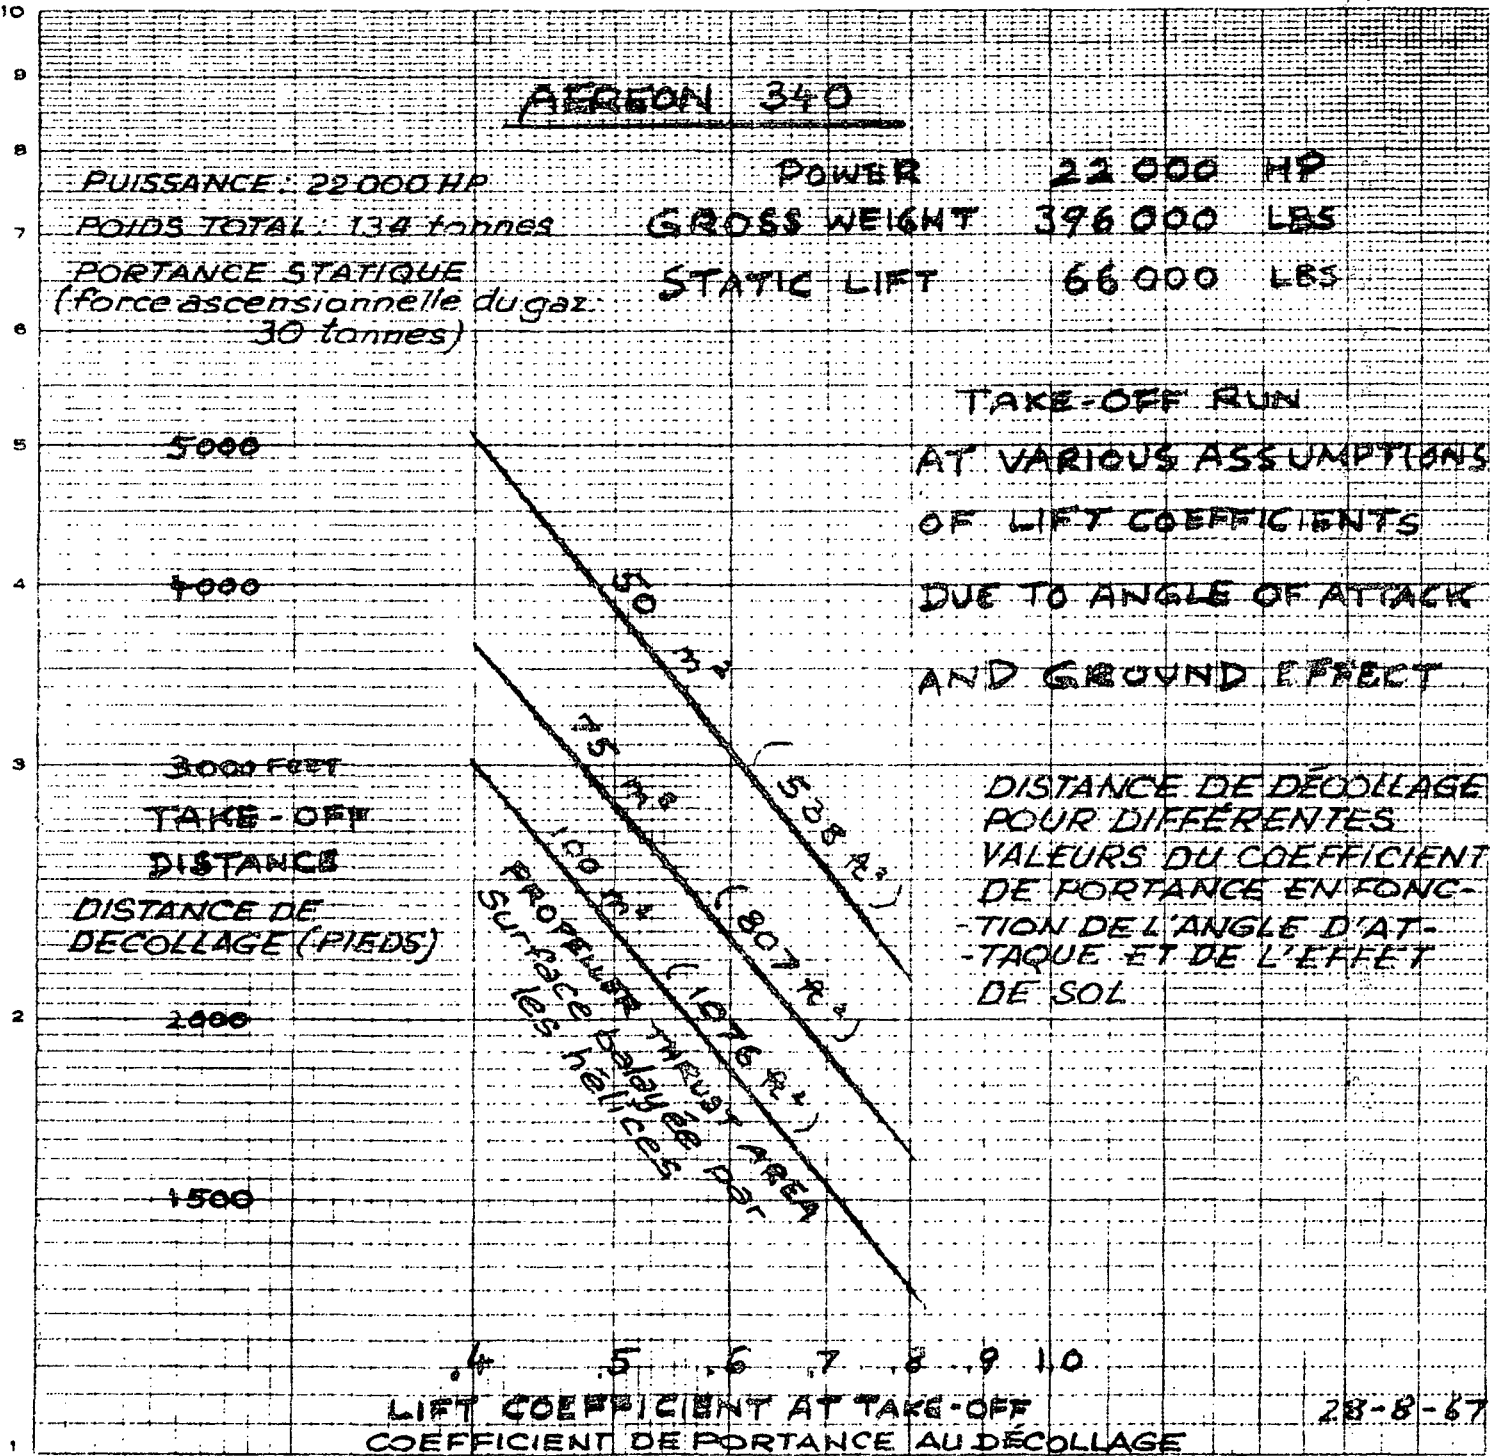 AEREON 340
PUISSANCE: 22000 HP
POIDS TOTAL: 134 tonnes
PORTANCE STATIQUE
(force ascensionnelle du gaz:
30 tonnes)
POWER 22 000 HP
GROSS WEIGHT 396 000 LBS
STATIC LIFT 66 000 LBS
TAKE-OFF RUN
AT VARIOUS ASSUMPTIONS
OF LIFT COEFFICIENTS
DUE TO ANGLE OF ATTACK
AND GROUND EFFECT
DISTANCE DE DÉCOLLAGE
POUR DIFFÉRENTES
VALEURS DU COEFFICIENT
DE PORTANCE EN FONC-
-TION DE L'ANGLE D'AT-
-TAQUE ET DE L'EFFET
DE SOL
10
9
8
7
6
5
4
3
2
1
5000
4000
3000 FEET
TAKE-OFF
DISTANCE
DISTANCE DE
DECOLLAGE (PIEDS)
2000
1500
50 m² (538 ft²)
75 m² (807 ft²)
100 m² (1076 ft²)
PROPELLER THRUST AREA
Surface balayée par
les hélices
.4 .5 .6 .7 .8 .9 1.0
LIFT COEFFICIENT AT TAKE-OFF
COEFFICIENT DE PORTANCE AU DÉCOLLAGE
28-8-67